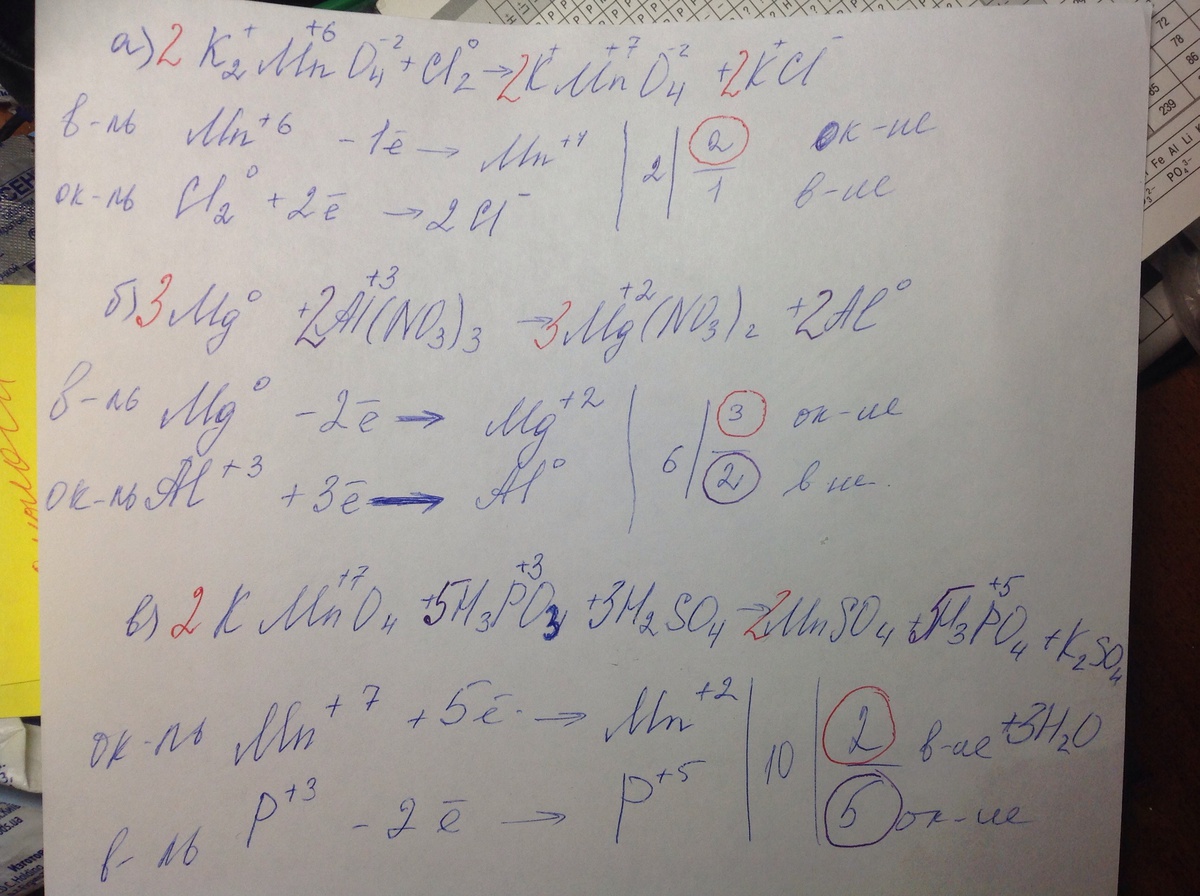 а) 2 K₂⁺Mn⁺⁶O₄⁻² + Cl₂⁰ → 2K⁺Mn⁺⁷O₄⁻² + 2K⁺Cl⁻
в-ль Mn⁺⁶ - 1ē → Mn⁺⁷ | 2 | 2 ок-ие
ок-ль Cl₂⁰ + 2ē → 2Cl⁻ | | 1 в-ие
б) 3Mg⁰ + 2Al⁺³(NO₃)₃ → 3Mg⁺²(NO₃)₂ + 2Al⁰
в-ль Mg⁰ - 2ē → Mg⁺² | 6 | 3 ок-ие
ок-ль Al⁺³ + 3ē → Al⁰ | | 2 в ие.
в) 2 K Mn⁺⁷O₄ + 5H₃P⁺³O₃ + 3H₂SO₄ → 2MnSO₄ + 5H₃P⁺⁵O₄ + K₂SO₄
+3H₂O
ок-ль Mn⁺⁷ + 5ē → Mn⁺² | 10 | 2 в-ие
в-ль P⁺³ - 2ē → P⁺⁵ | | 5 ок-ие
72
78
86
85
239
Fe Al Li
PO₄³⁻